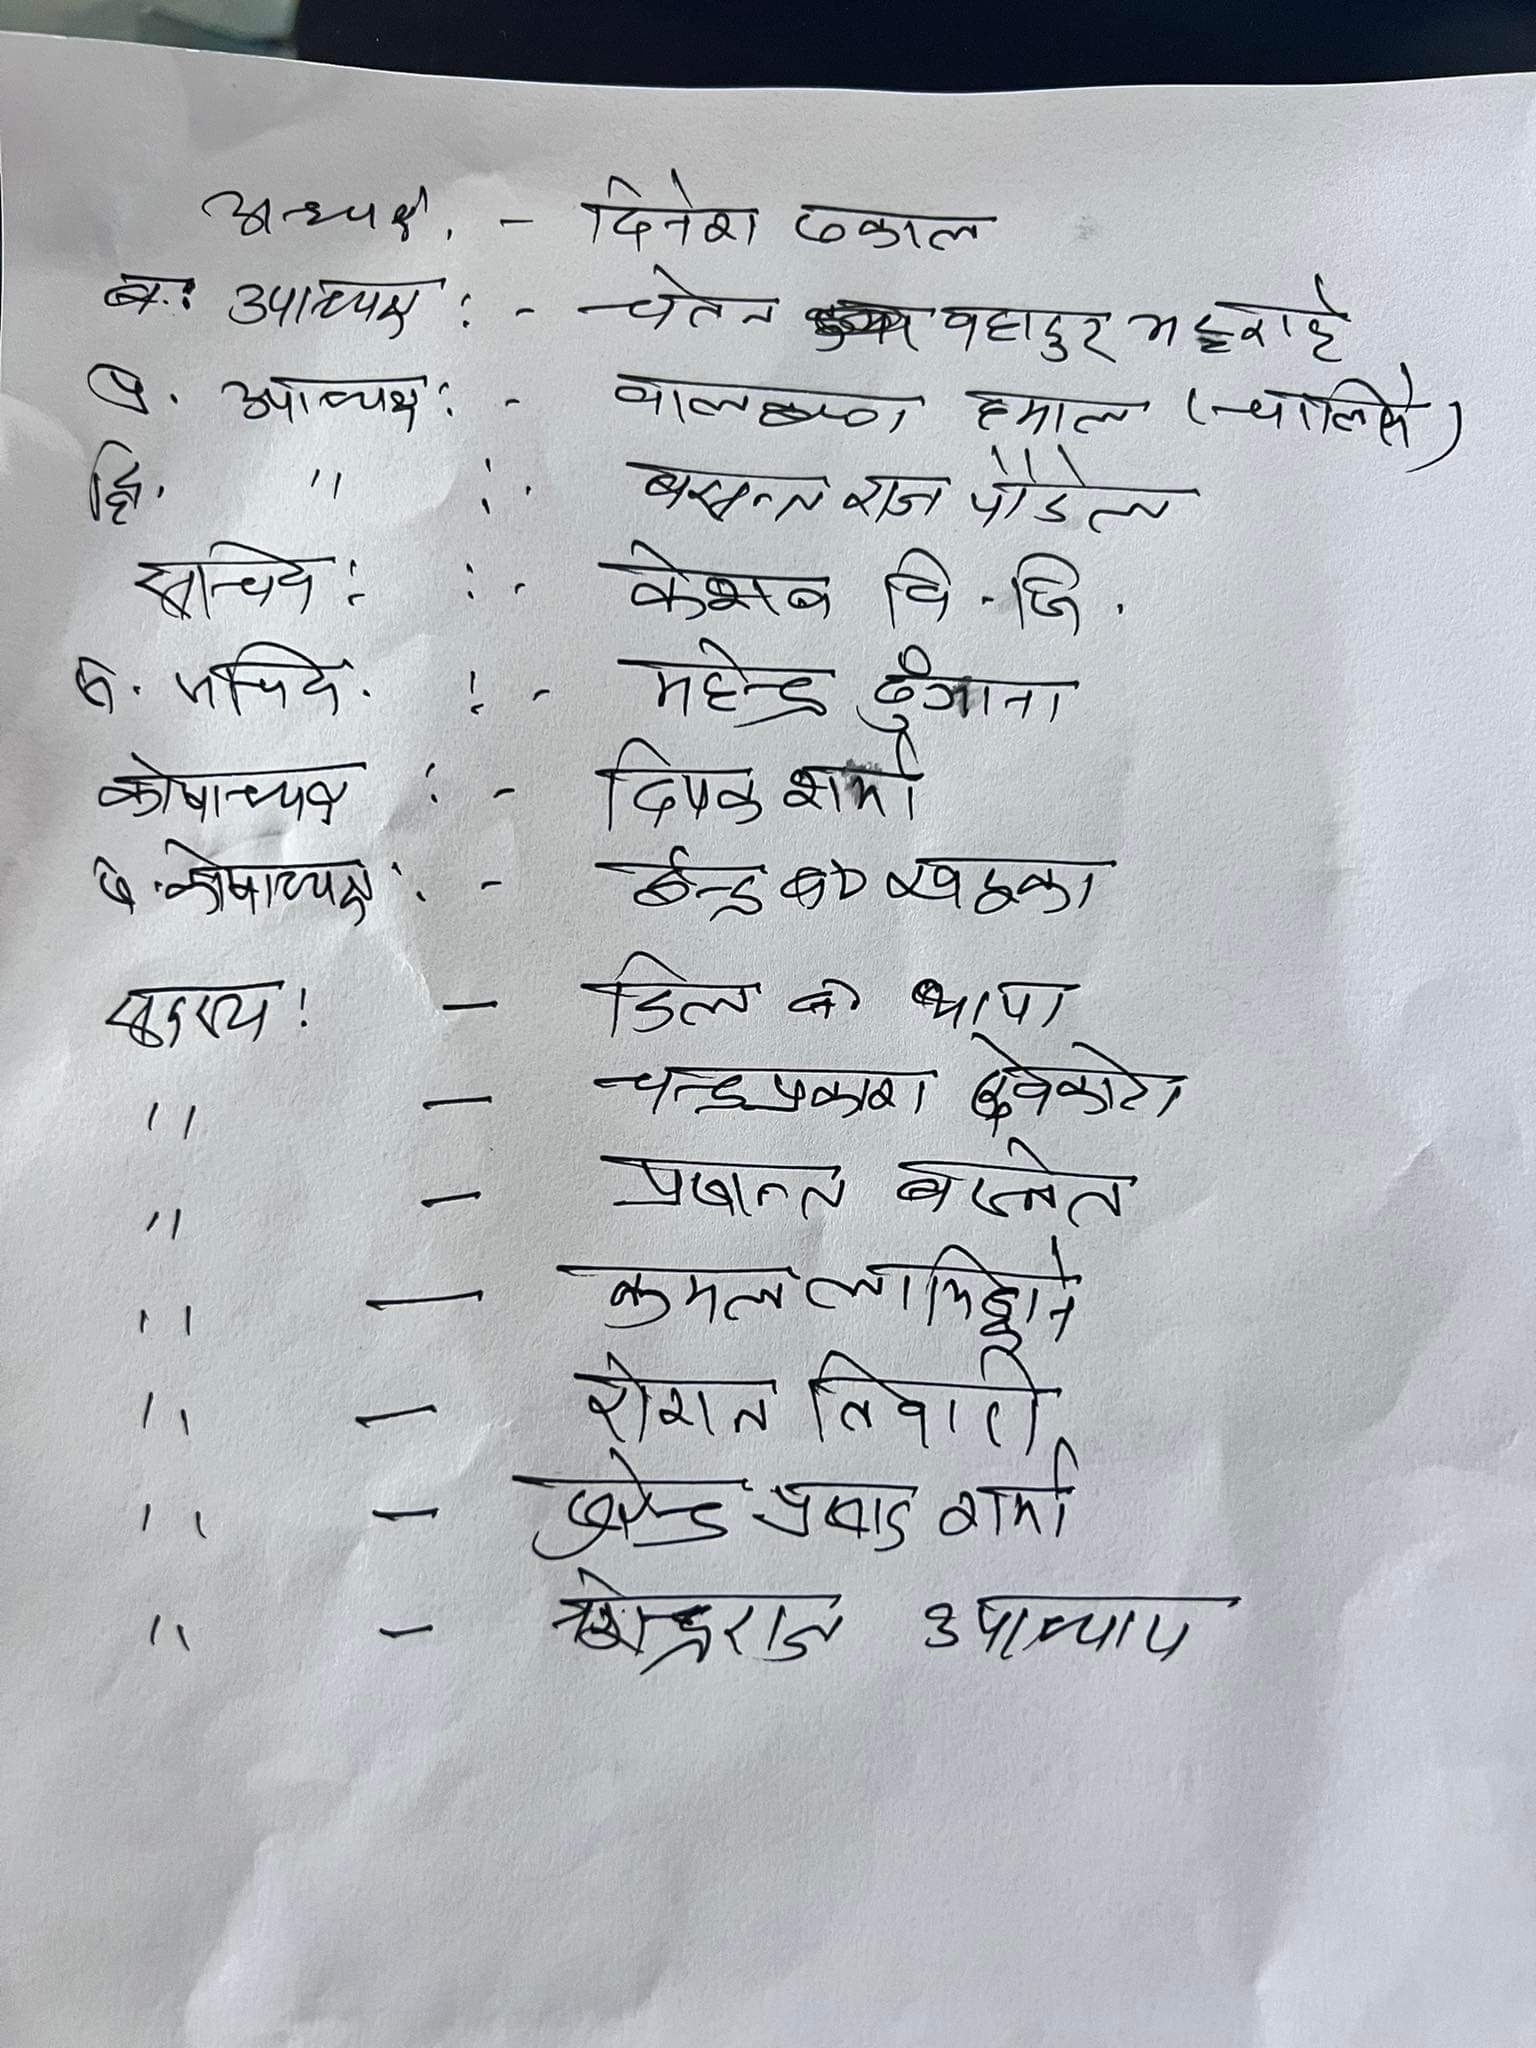 अध्यक्ष. - दिनेश ढकाल
ब.: उपाध्यक्ष : - चेतन बहादुर भट्टराई
प्र. उपाध्यक्ष : - बालकृष्ण हमाल (चालिसे)
द्वि. " : - बसन्त राज पौडेल
सचिव : : - केशब वि. जि.
स. सचिव. : - महेन्द्र ढुंगाना
कोषाध्यक्ष : - दिपक शर्मा
स. कोषाध्यक्ष : - ब० खड्का
सदस्य : - डिल ब० थापा
" - चन्द्रप्रकाश देवकोटा
" - प्रशान्त बस्नेत
" - कमल लामिछाने
" - रोशन तिवारी
" - प्रसाद शर्मा
" - उपाध्याय